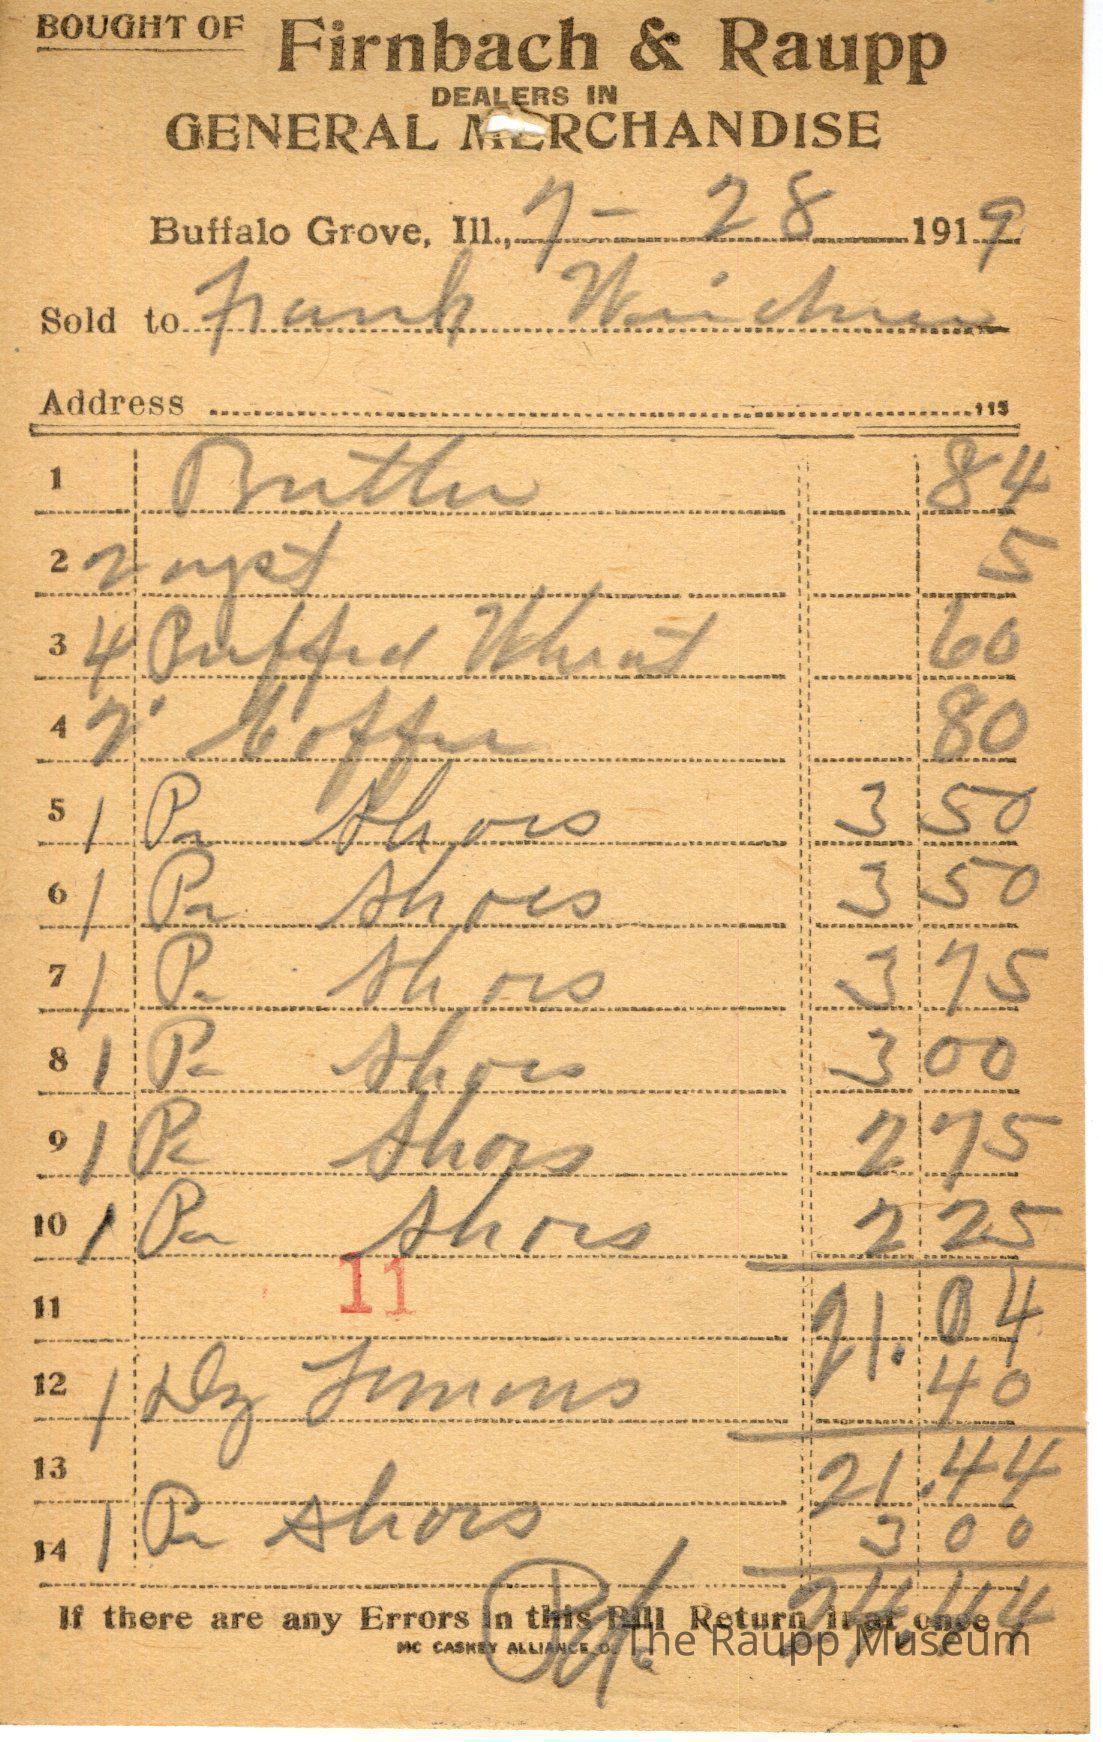 BOUGHT OF Firnbach & Raupp
DEALERS IN
GENERAL MERCHANDISE
Buffalo Grove, Ill., 7-28 1919
Sold to Frank
Address 115
1 Butter 84
2 2 5
3 4 Puffed Wheat 60
4 2 Coffee 80
5 1 Pr Shoes 3 50
6 1 Pr Shoes 3 50
7 1 Pr Shoes 3 75
8 1 Pr Shoes 3 00
9 1 Pr Shoes 2 75
10 1 Pr Shoes 2 25
11
11 21.04
12 1 Dz Lemons 40
13 21.44
14 1 Pr Shoes 3 00
24.44
If there are any Errors in this Bill Return it at once
Pd.
MC CASKEY ALLIANCE O.
The Raupp Museum